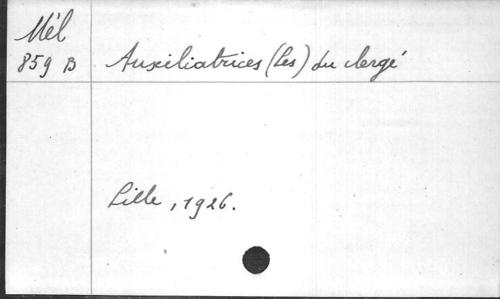 Mél
859 B
Auxiliatrices (Les) du clergé
Lille, 1926.